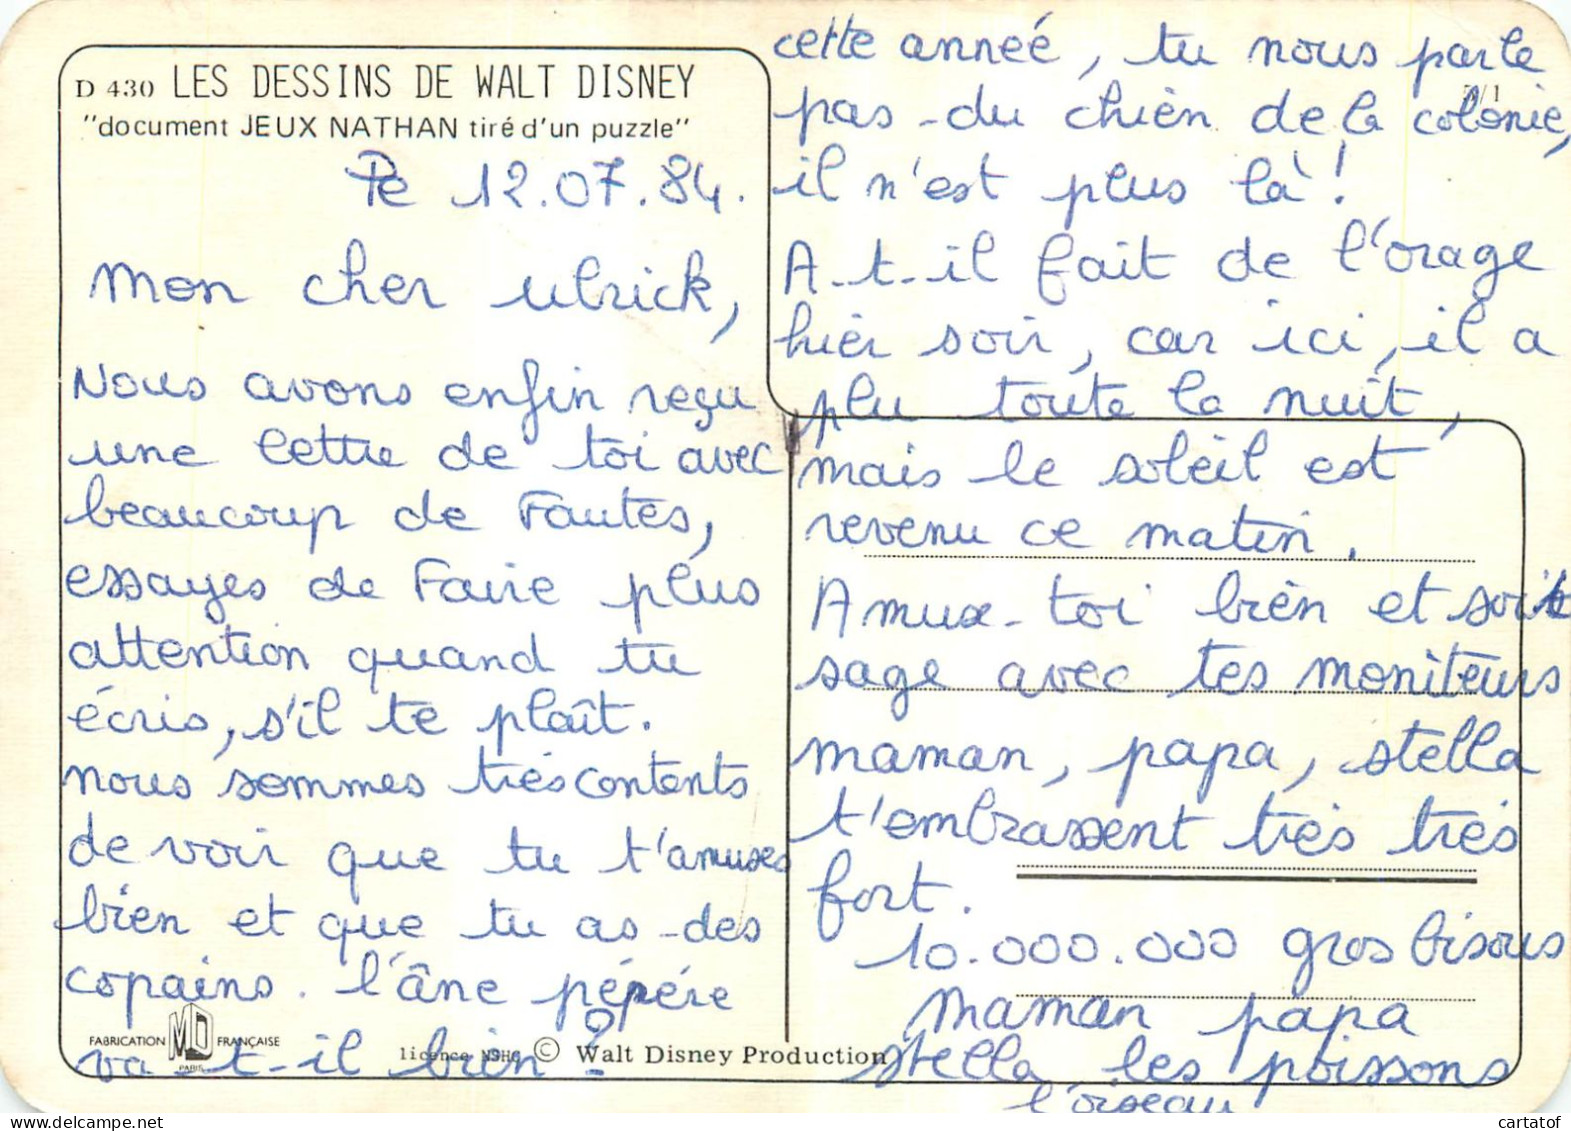 D 430 LES DESSINS DE WALT DISNEY
"document JEUX NATHAN tiré d'un puzzle"
le 12.07.84.
Mon cher ulrick,
Nous avons enfin reçu
une lettre de toi avec
beaucoup de Fautes,
essayes de Faire plus
attention quand tu
écris, s'il te plaît.
nous sommes très contents
de voir que tu t'amuses
bien et que tu as des
copains. l'âne pépère
va-t-il bien ?
FABRICATION MD FRANÇAISE
PARIS
licence © Walt Disney Production
cette anneé, tu nous parle
pas du chien de la colonie,
il n'est plus là !
A-t-il fait de l'orage
hier soir, car ici, il a
plu toute la nuit,
mais le soleil est
revenu ce matin.
Amuse-toi bien et sois
sage avec tes moniteurs
maman, papa, stella
t'embrassent très très
fort.
10.000.000 gros bisous
Maman papa
stella les poissons
l'oiseau
cartatof